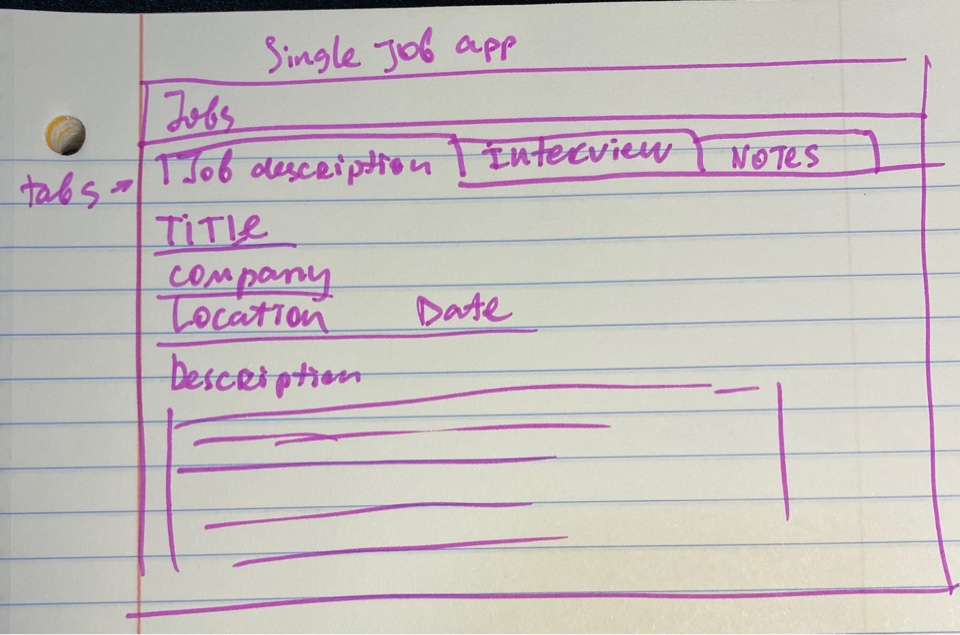 Single Job app
Jobs
tabs → Job description Interview NOTES
TiTle
company
Location Date
Description